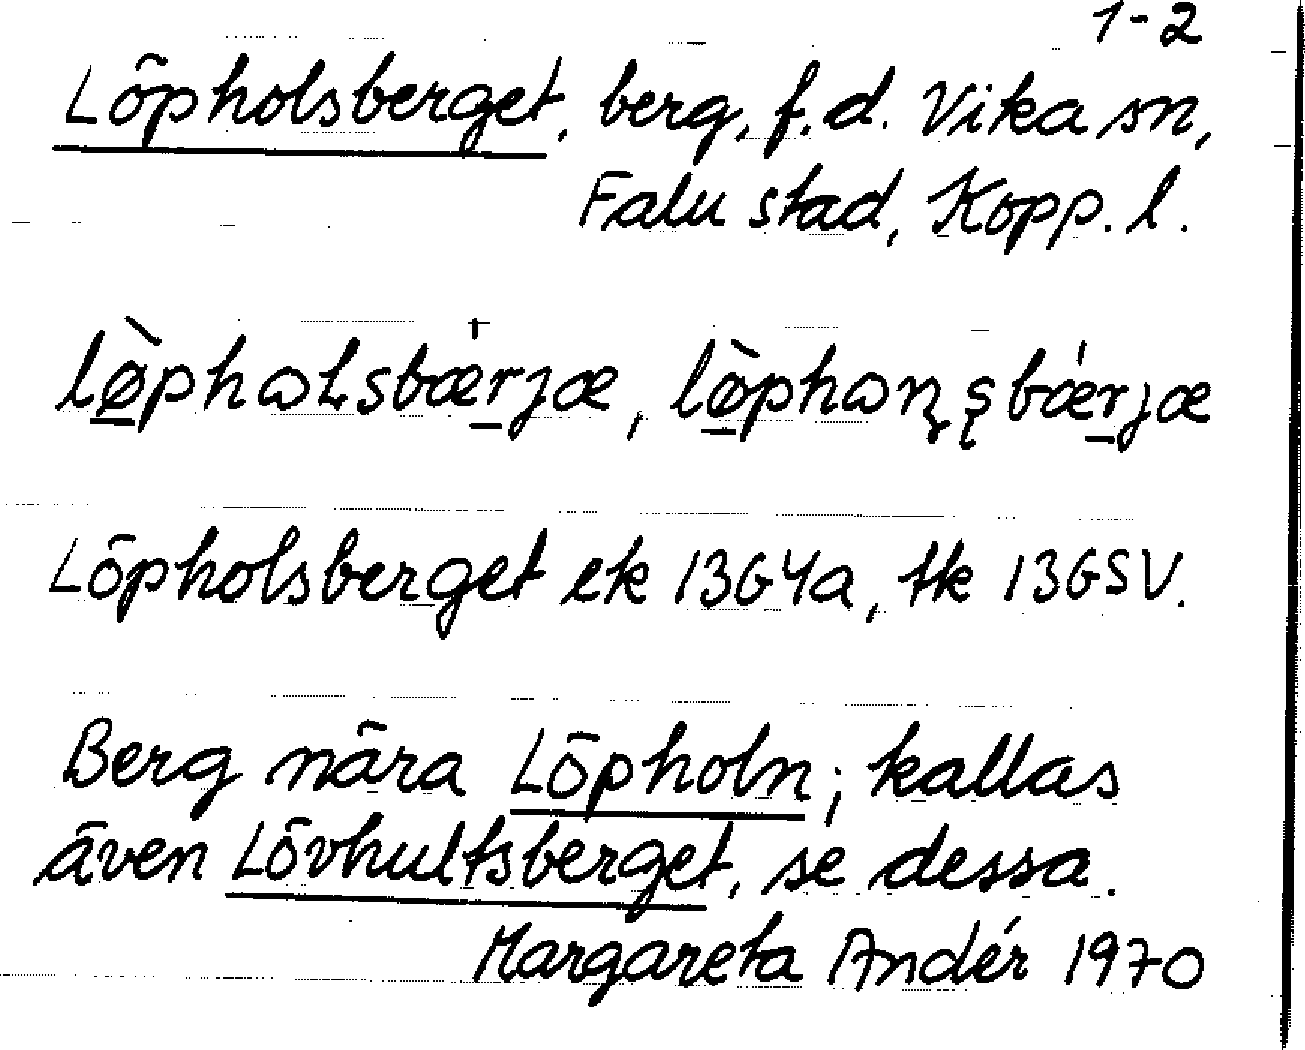 1-2
Löpholsberget, berg, f.d. Vika sn,
Falu stad, Kopp. l.
lø̀phɷLsbærjæ, lø̀phɷɳʂbǽrjæ
Löpholsberget ek 13G4a, tk 13GSV.
Berg nära Löpholn; kallas
även Lövhultsberget, se dessa.
Margareta Andér 1970